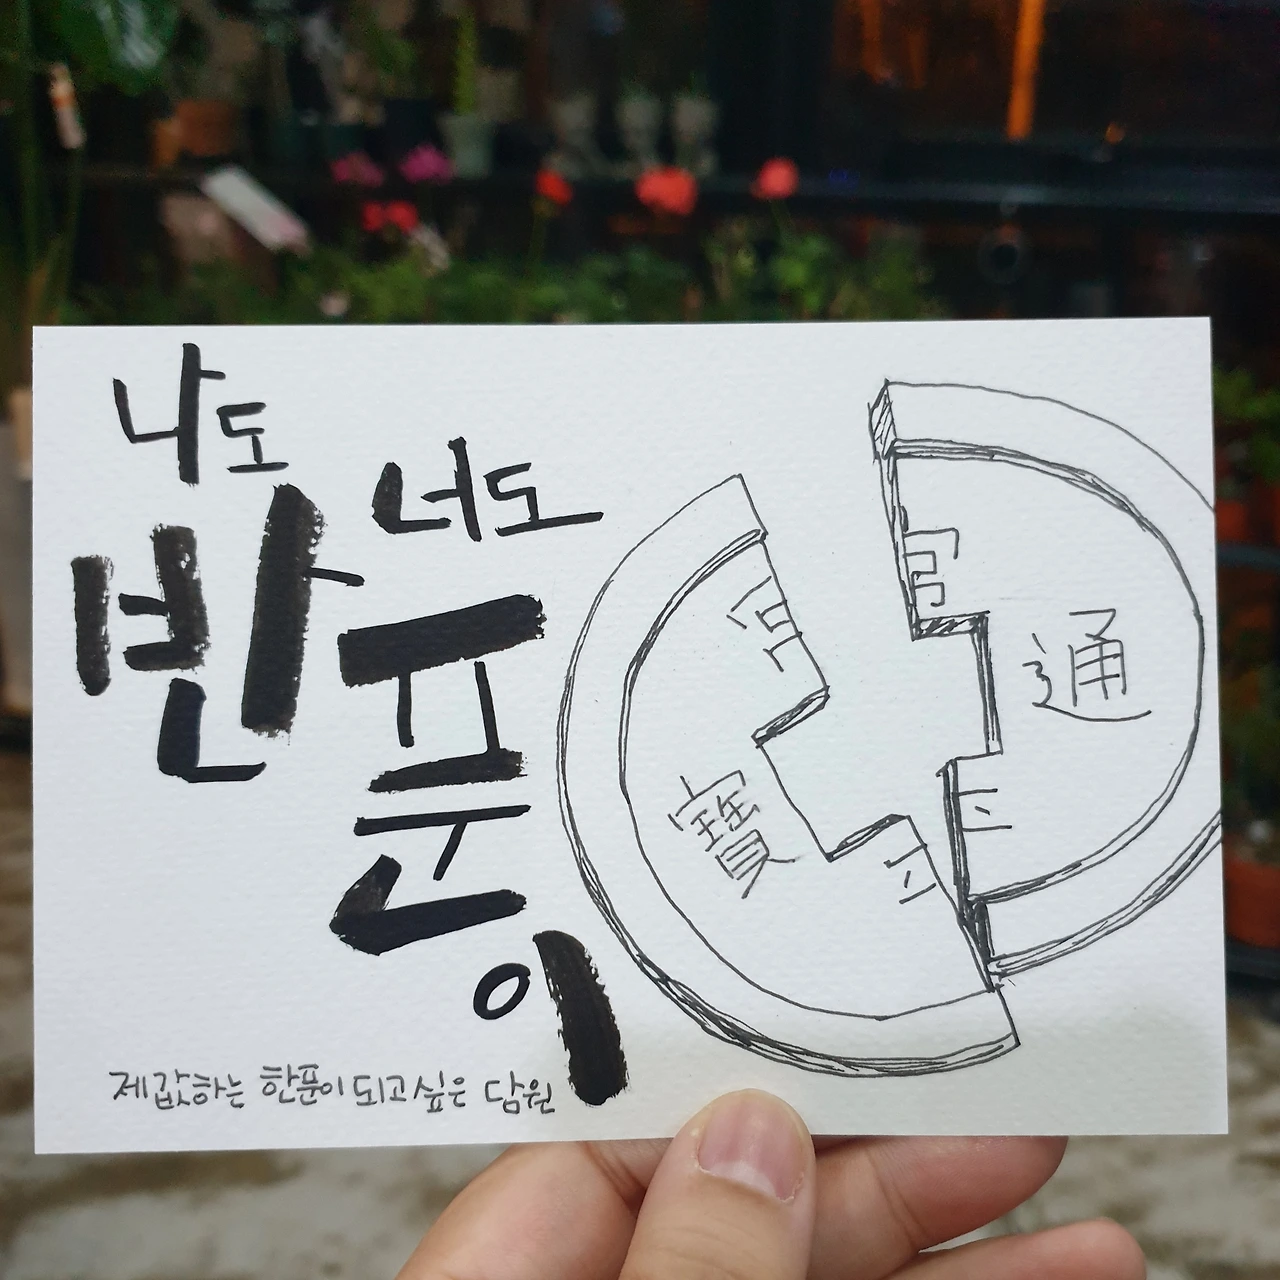 나도
너도
반
푼
이
通
寶
제값하는 한푼이 되고싶은 담원